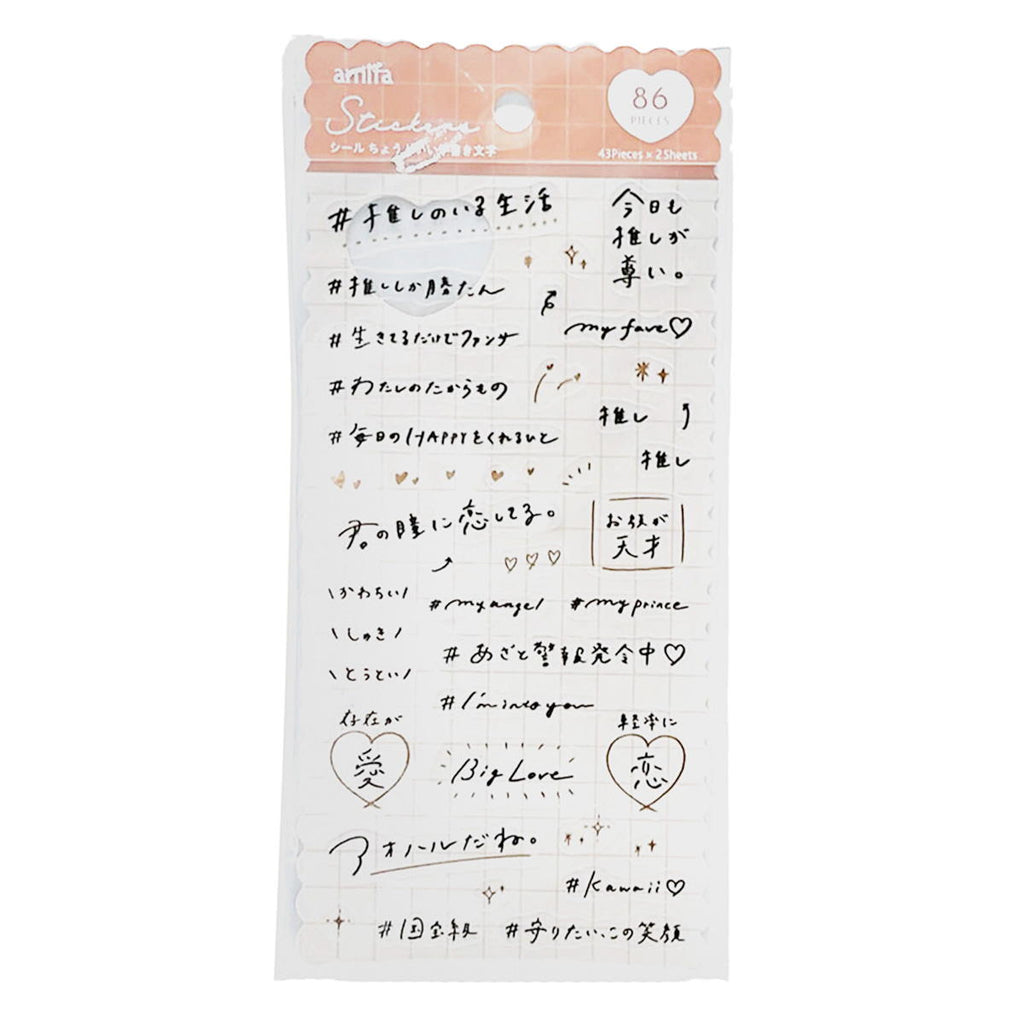 amifa
Stickers
シール ちょうどいい手書き文字
86
PIECES
43Pieces × 2Sheets
#推しのいる生活
今日も
推しが
尊い。
#推ししか勝たん
my fave♡
#生きてるだけでファンサ
#わたしのたからもの
推し
#毎日のHAPPYをくれるひと
推し
君の瞳に恋してる。
お顔が
天才
\かわちい/
#my angel
#my prince
\しゅき/
#あざと警報発令中♡
\とうとい/
#I'm into you
存在が
愛
Big Love
軽率に
恋
アオハルだね。
#kawaii♡
#国宝級
#守りたい、この笑顔